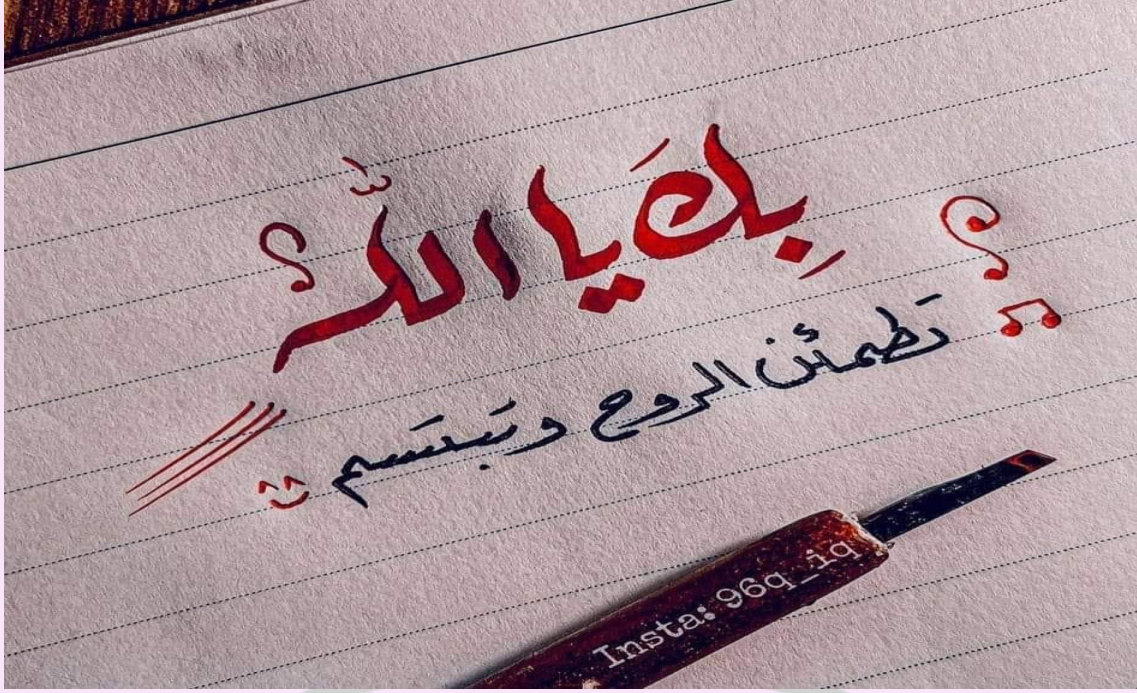 بِكَ يا اللّٰه
تطمئن الروح وتبتسم
Insta: 96q_iq